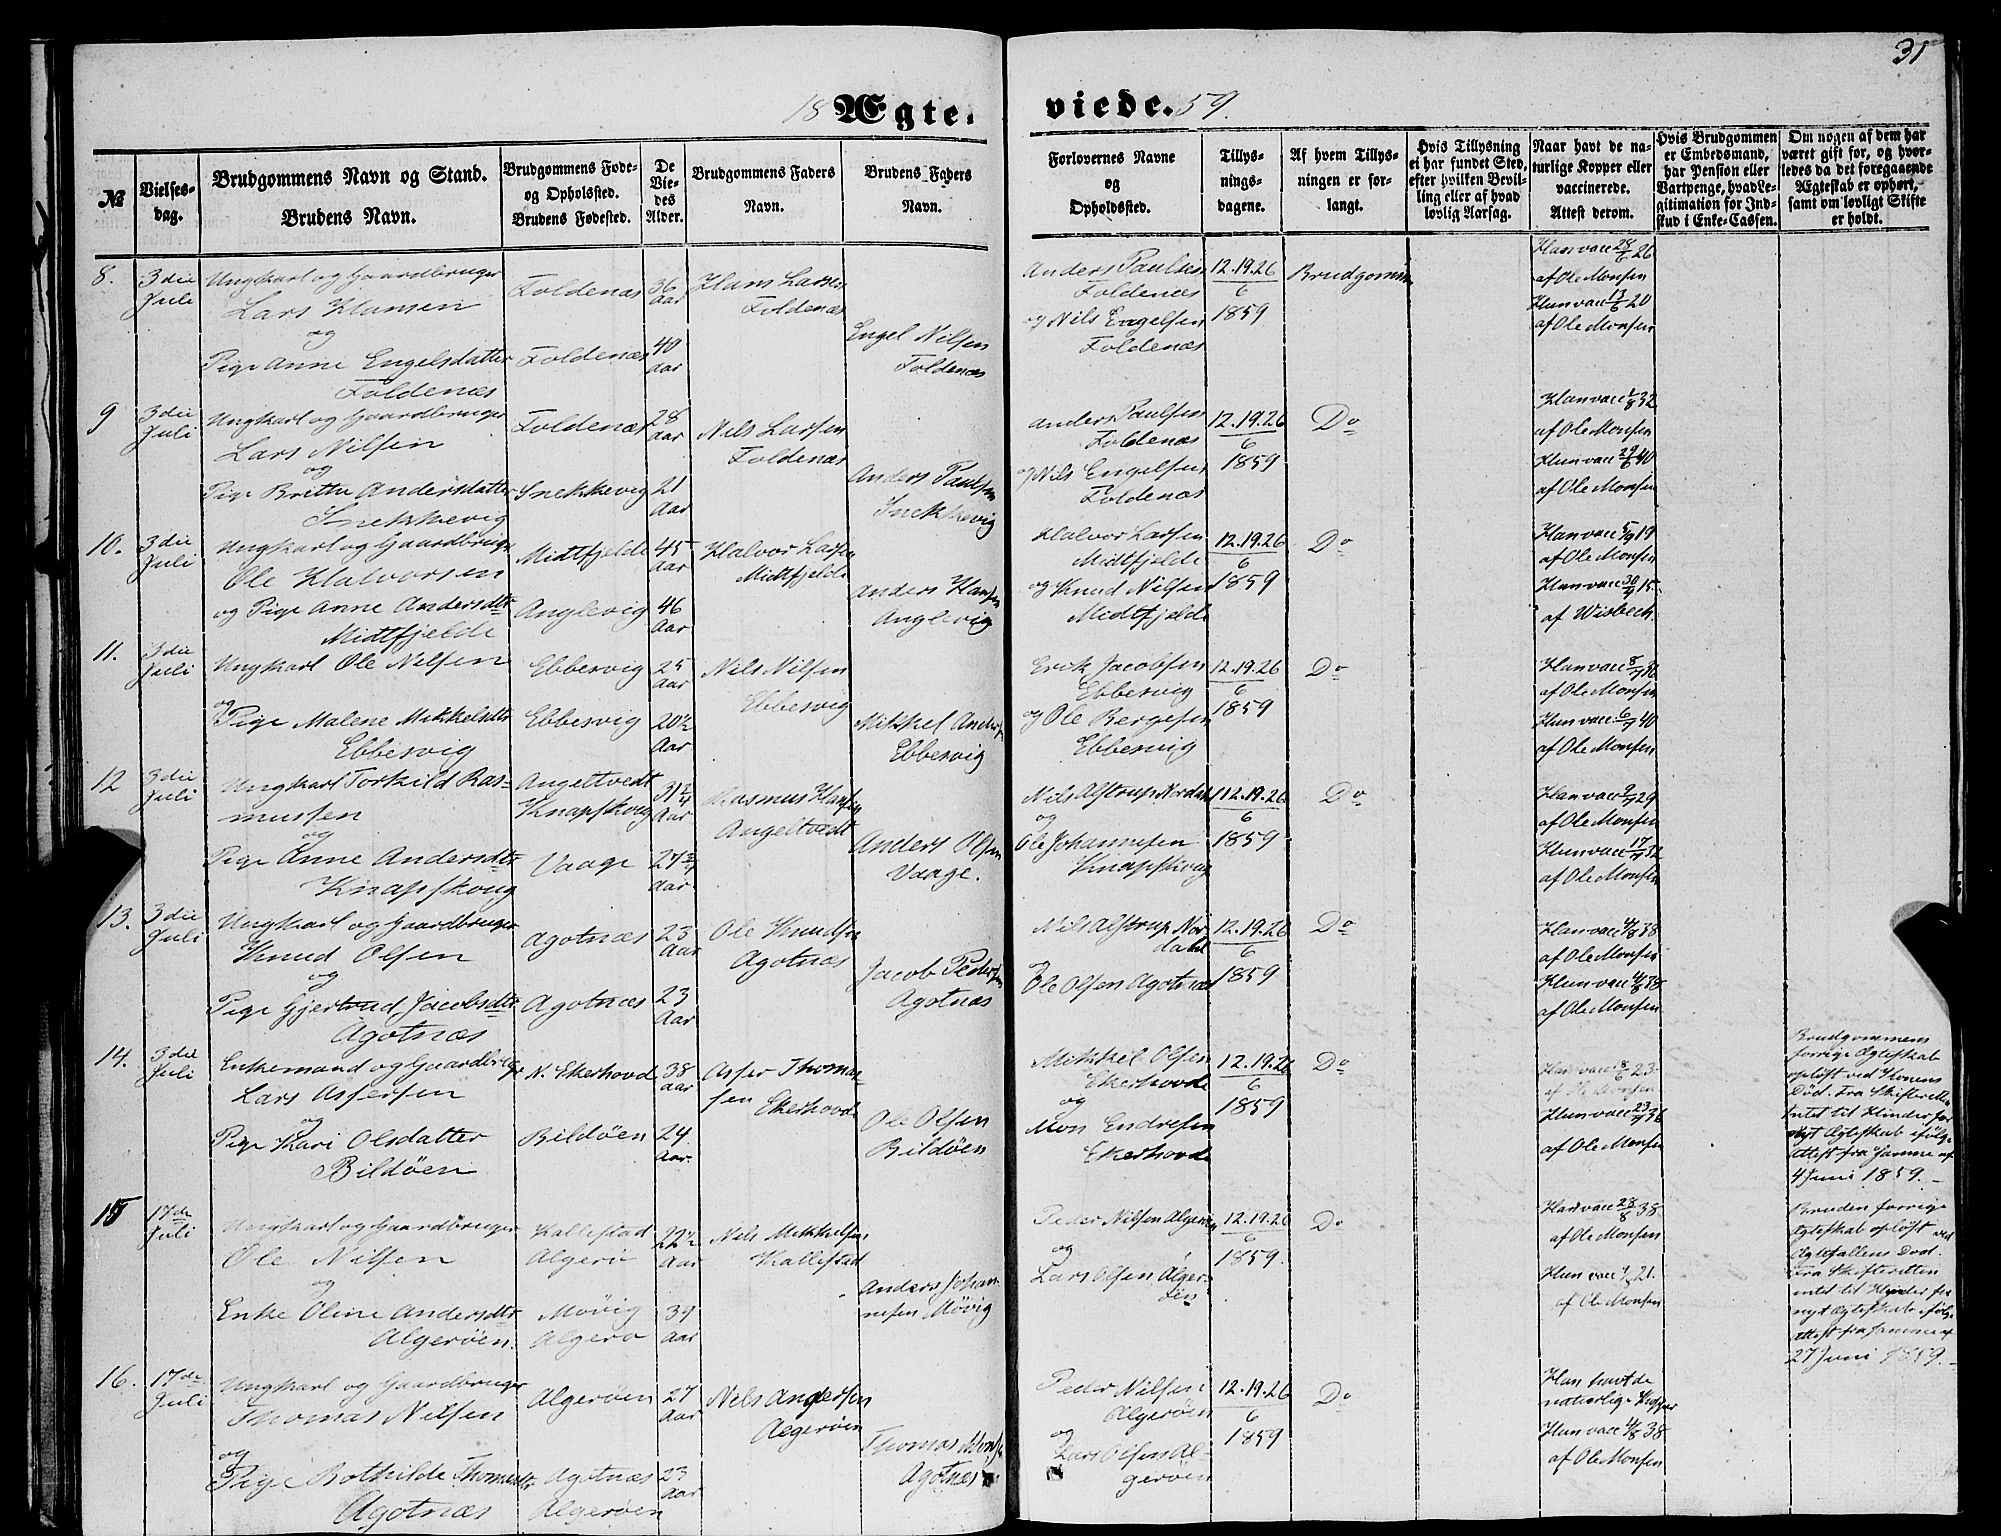 31
18 Ægte-
viede. 59.
№
Vielses-
dag.
Brudgommens Navn og Stand.
Brudens Navn.
Brudgommens Føde-
og Opholdssted.
Brudens Fødested.
De
Vie-
des
Alder.
Brudgommens Faders
Navn.
Brudens Faders
Navn.
Forlovernes Navne
og
Opholdssted.
Tillys-
nings-
dagene.
Af hvem Tillys-
ningen er for-
langt.
Hvis Tillysning
ei har fundet Sted,
efter hvilken Bevil-
ling eller af hvad
lovlig Aarsag.
Naar havt de na-
turlige Kopper eller
vaccinerede.
Attest derom.
Hvis Brudgommen
er Embedsmand,
har Pension eller
Vartpenge, hvad Le-
gitimation for Ind-
skud i Enke-Cassen.
Om nogen af dem har
været gift før, og hvor-
ledes da det foregaaende
Ægteskab er ophørt,
samt om lovligt Skifte
er holdt.
8. 3die Juli
Ungkarl og Gaardbruger
Lars Hansen
og
Pige Anne Engelsdatter
Foldenæs
Foldenæs 36 Aar
Foldenæs 40 Aar
Hans Larsen
Foldenæs
Engel Nilsen
Foldenæs
Anders Paulsen
Foldenæs
og Nils Engelsen
Foldenæs
12.19.26
6
1859
Brudgommen
Han vacc 28/6 26
af Ole Monsen
Hun vacc 13/6 20
af Ole Monsen
9 3die Juli
Ungkarl og Gaardbruger
Lars Nilsen
og
Pige Brithe Andersdatter
Snekkevig
Foldenæs 28 Aar
Snekkevig 21 Aar
Nils Larsen
Foldenæs
Anders Paulsen
Snekkevig
Anders Paulsen
Foldenæs
og Nils Engelsen
Foldenæs
12.19.26
6
1859
Do
Han vacc 1/8 32
af Ole Monsen
Hun vacc 29/6 40
af Ole Monsen
10. 3die Juli
Ungkarl og Gaardbruger
Ole Halvorsen
og Pige Anne Andersdtr
Midtfjelde
Midtfjelde 45 Aar
Anglevig 46 Aar
Halvor Larsen
Midtfjelde
Anders Hansen
Anglevig
Halvor Larsen
Midtfjelde
og Knud Nilsen
Midtfjelde
12.19.26
6
1859
Do
Han vacc 5/9 19
af Ole Monsen
Hun vacc 30/9 15.
af Wisbech.
11. 3die Juli
Ungkarl Ole Nilsen
og
Pige Malene Mikkelsdtr
Ebbesvig
Ebbesvig 25 Aar
Ebbesvig 20½ Aar
Nils Nilsen
Ebbesvig
Mikkel Andersen
Ebbesvig
Erik Jacobsen
Ebbesvig
og Ole Bergesen
Ebbesvig
12.19.26
6
1859
Do
Han vacc 8/7 36
af Ole Monsen
Hun vacc 6/7 40
af Ole Monsen
12 3die Juli
Ungkarl Torkild Ras-
mussen
og
Pige Anne Andersdtr
Knapskoug
Angeltvedt
Knapskoug
Vaage
Aar
Aar
Rasmus Hansen
Angeltvedt
Anders Olsen
Vaage.
Nils Alstrup Nordahl
og
Ole Johannesen
Knapskoug
12.19.26
6
1859
Do
Han vacc 2/7 29
af Ole Monsen
Hun vacc 17/7 32
af Ole Monsen
13. 3die Juli
Ungkarl og Gaardbruger
Knud Olsen
og
Pige Gjertrud Jacobsdtr
Agotnæs
Agotnæs 23 Aar
Agotnæs 23 Aar
Ole Knudsen
Agotnæs
Jacob Pedersen
Agotnæs
Nils Alstrup Nor
dahl
og
Ole Olsen Agotnæs
12.19.26
6
1859
Do
Han vacc 4/8 38
af Ole Monsen
Hun vacc 4/8 38
af Ole Monsen
14. 3die Juli
Enkemand og Gaardbruger
Lars Assersen
og
Pige Kari Olsdatter
Bildøen
N. Ekerhovde 38 Aar
Bildøen 24 Aar.
Asser Thomas-
sen Ekerhovde
Ole Olsen
Bildøen
Mikkel Olsen
Ekerhovde
og
Mon Endresen
Ekerhovde
12.19.26
6
1859
Do
Han vacc 8/6 23.
af Ole Monsen
Hun vacc 23/7 36
af Ole Monsen
Brudgommens
forrige Ægteskab
opløst ved Konens
Død. Fra Skifteret
intet til Hinder for
nyt Ægteskab ifølge
Attest fra samme af
4 Juni 1859.
15 17de Juli
Ungkarl og Gaardbruger
Ole Nilsen
og
Enke Oline Andersdtr
Algerøen.
Kallestad
Algerø
22½ Aar
Møvig
Algerø
39 Aar
Nils Mikkelsen
Kallestad
Anders Johan-
nesen Møvig
Peder Nilsen Algerøen
og
Lars Olsen Alger-
øen
12.19.26
6
1859.
Do
Han vacc 28/8 38
af Ole Monsen
Hun vacc 21.
af Ole Monsen
Bruden forrige
Ægteskab opløst ved
Ægtefællens Død.
Fra Skifteretten
intet til Hinder for
nyt Ægteskab ifølge
Attest fra samme af
27 Juni 1859.
16. 17de Juli
Ungkarl og Gaardbruger
Thomas Nilsen
og
Pige Bothilde Thomasdtr
Agotnæs
Algerøen 27 Aar
Agotnæs
Algerøen
23 Aar
Nils Andersen
Algerøen
Thomas Monsen
Agotnæs
Peder Nilsen
Algerøen
og
Lars Olsen Al-
gerøen
12.19.26
6
1859
Do
Han havt de
naturlige Kopper
Hun vacc 4/8 38
af Ole Monsen